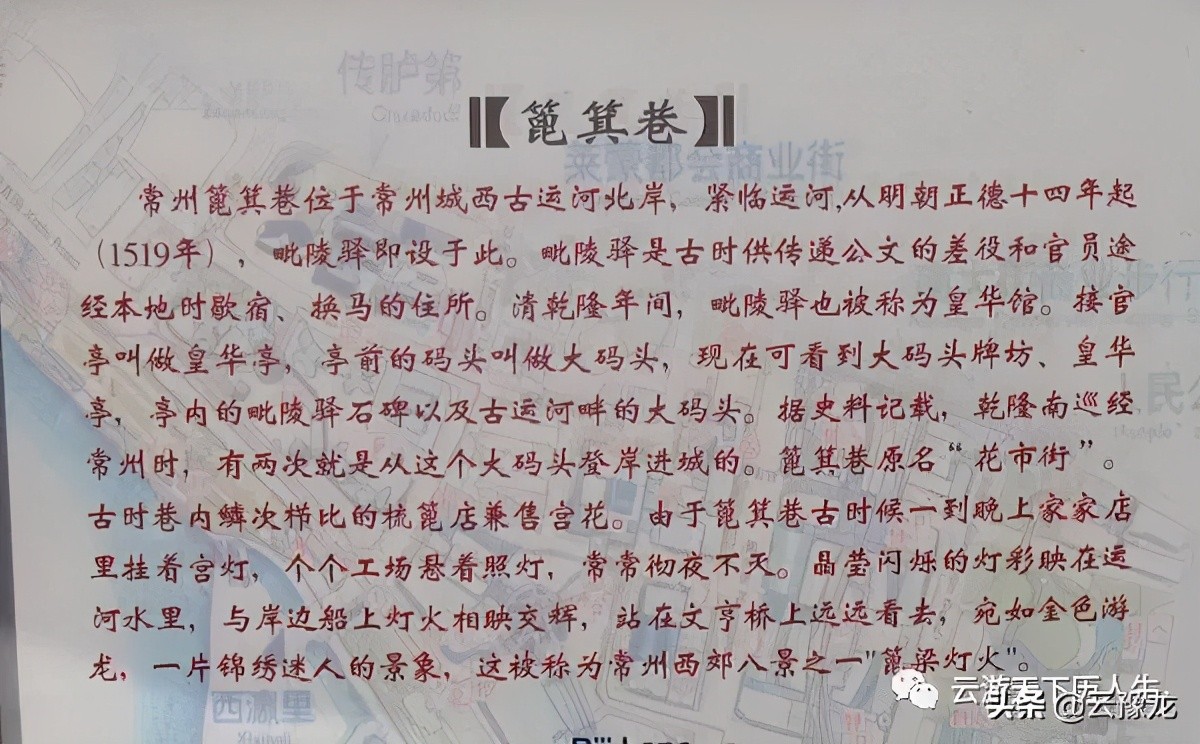 传胪第
【篦箕巷】
莱蒙都会商业街
常州篦箕巷位于常州城西古运河北岸，紧临运河,从明朝正德十四年起
（1519年），毗陵驿即设于此。毗陵驿是古时供传递公文的差役和官员途
经本地时歇宿、换马的住所。清乾隆年间，毗陵驿也被称为皇华馆。接官
亭叫做皇华亭，亭前的码头叫做大码头，现在可看到大码头牌坊、皇华
亭，亭内的毗陵驿石碑以及古运河畔的大码头。据史料记载，乾隆南巡经
常州时，有两次就是从这个大码头登岸进城的。篦箕巷原名“花市街”。
古时巷内鳞次栉比的梳篦店兼售宫花。由于篦箕巷古时候一到晚上家家店
里挂着宫灯，个个工场悬着照灯，常常彻夜不灭。晶莹闪烁的灯彩映在运
河水里，与岸边船上灯火相映交辉，站在文亨桥上远远看去，宛如金色游
龙，一片锦绣迷人的景象，这被称为常州西郊八景之一"篦梁灯火"。
西瀛里
云游天下历人生
头条 @云豫龙